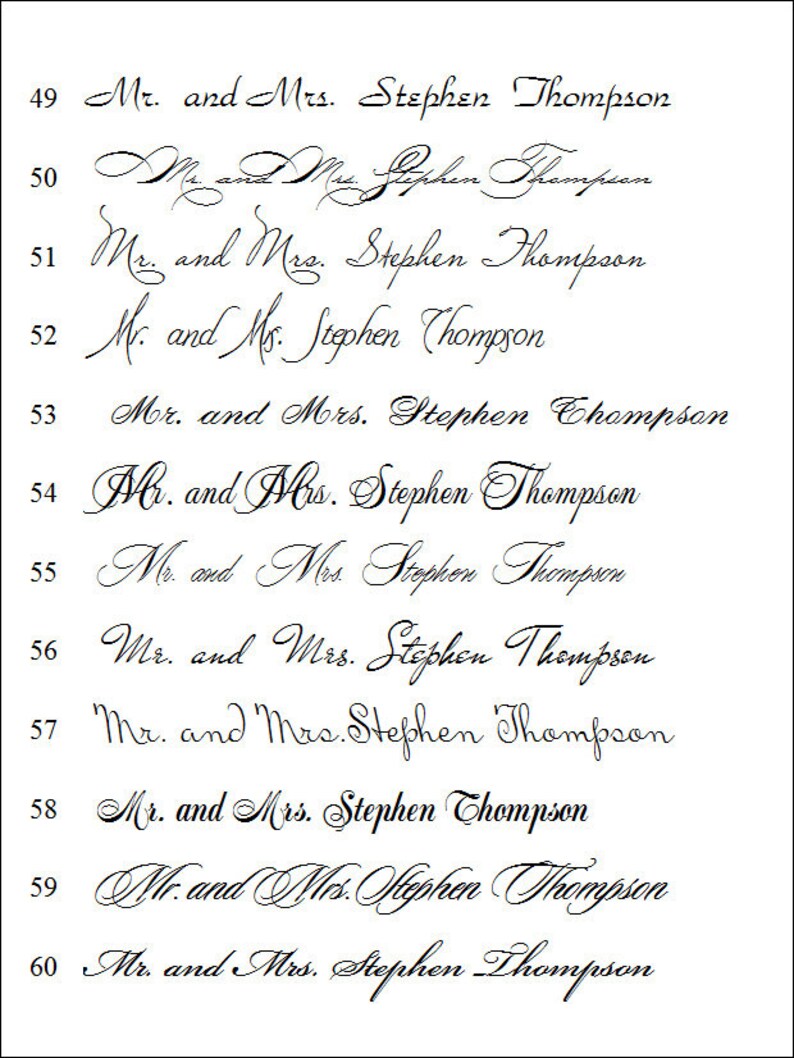 49 Mr. and Mrs. Stephen Thompson
50 Mr. and Mrs. Stephen Thompson
51 Mr. and Mrs. Stephen Thompson
52 Mr. and Mrs. Stephen Thompson
53 Mr. and Mrs. Stephen Thompson
54 Mr. and Mrs. Stephen Thompson
55 Mr. and Mrs. Stephen Thompson
56 Mr. and Mrs. Stephen Thompson
57 Mr. and Mrs. Stephen Thompson
58 Mr. and Mrs. Stephen Thompson
59 Mr. and Mrs. Stephen Thompson
60 Mr. and Mrs. Stephen Thompson